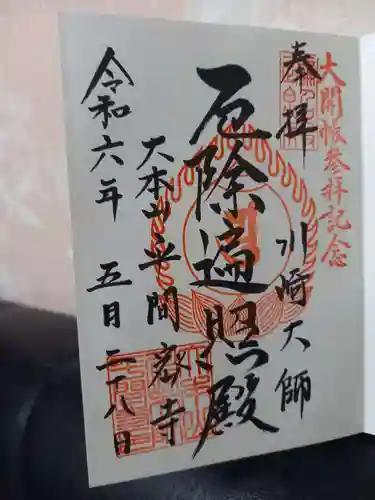 大開帳参拝記念
奉拝
川崎大師
厄除遍照殿
大本山平間寺
令和六年 五月二十八日